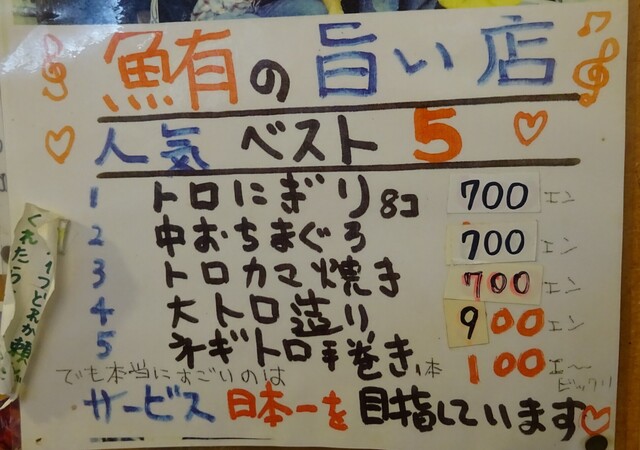 鮪の旨い店
人気ベスト5
1 トロにぎり8コ 700エン
2 中おちまぐろ 700エン
3 トロカマ焼き 700エン
4 大トロ造り 900エン
5 ネギトロ手巻き1本 100エ〜
ビックリ
でも本当にすごいのは
サービス日本一を目指しています
くれたら